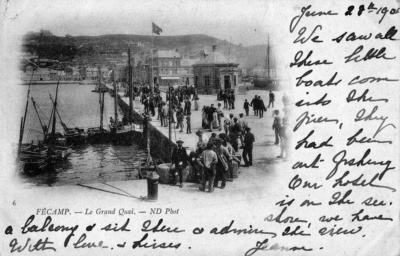 June 28th 190
We saw all
these little
boats come
into the
pier, they
had been
out fishing
Our hotel
is on the sea
shore, we have
6
FÉCAMP. — Le Grand Quai. — ND Phot
a balcony & sit there & admire the view.
With love & kisses.
Jeanne.